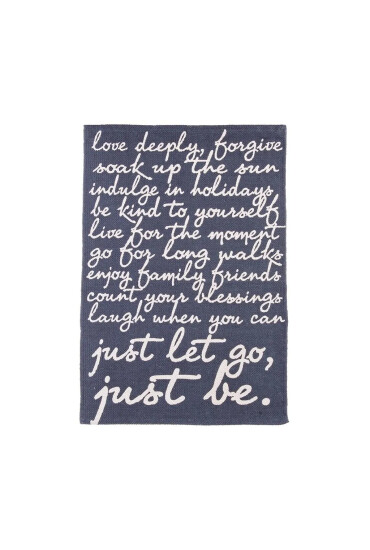 love deeply, forgive
soak up the sun
indulge in holidays
be kind to yourself
live for the moment
go for long walks
enjoy family friends
count your blessings
laugh when you can
just let go,
just be.